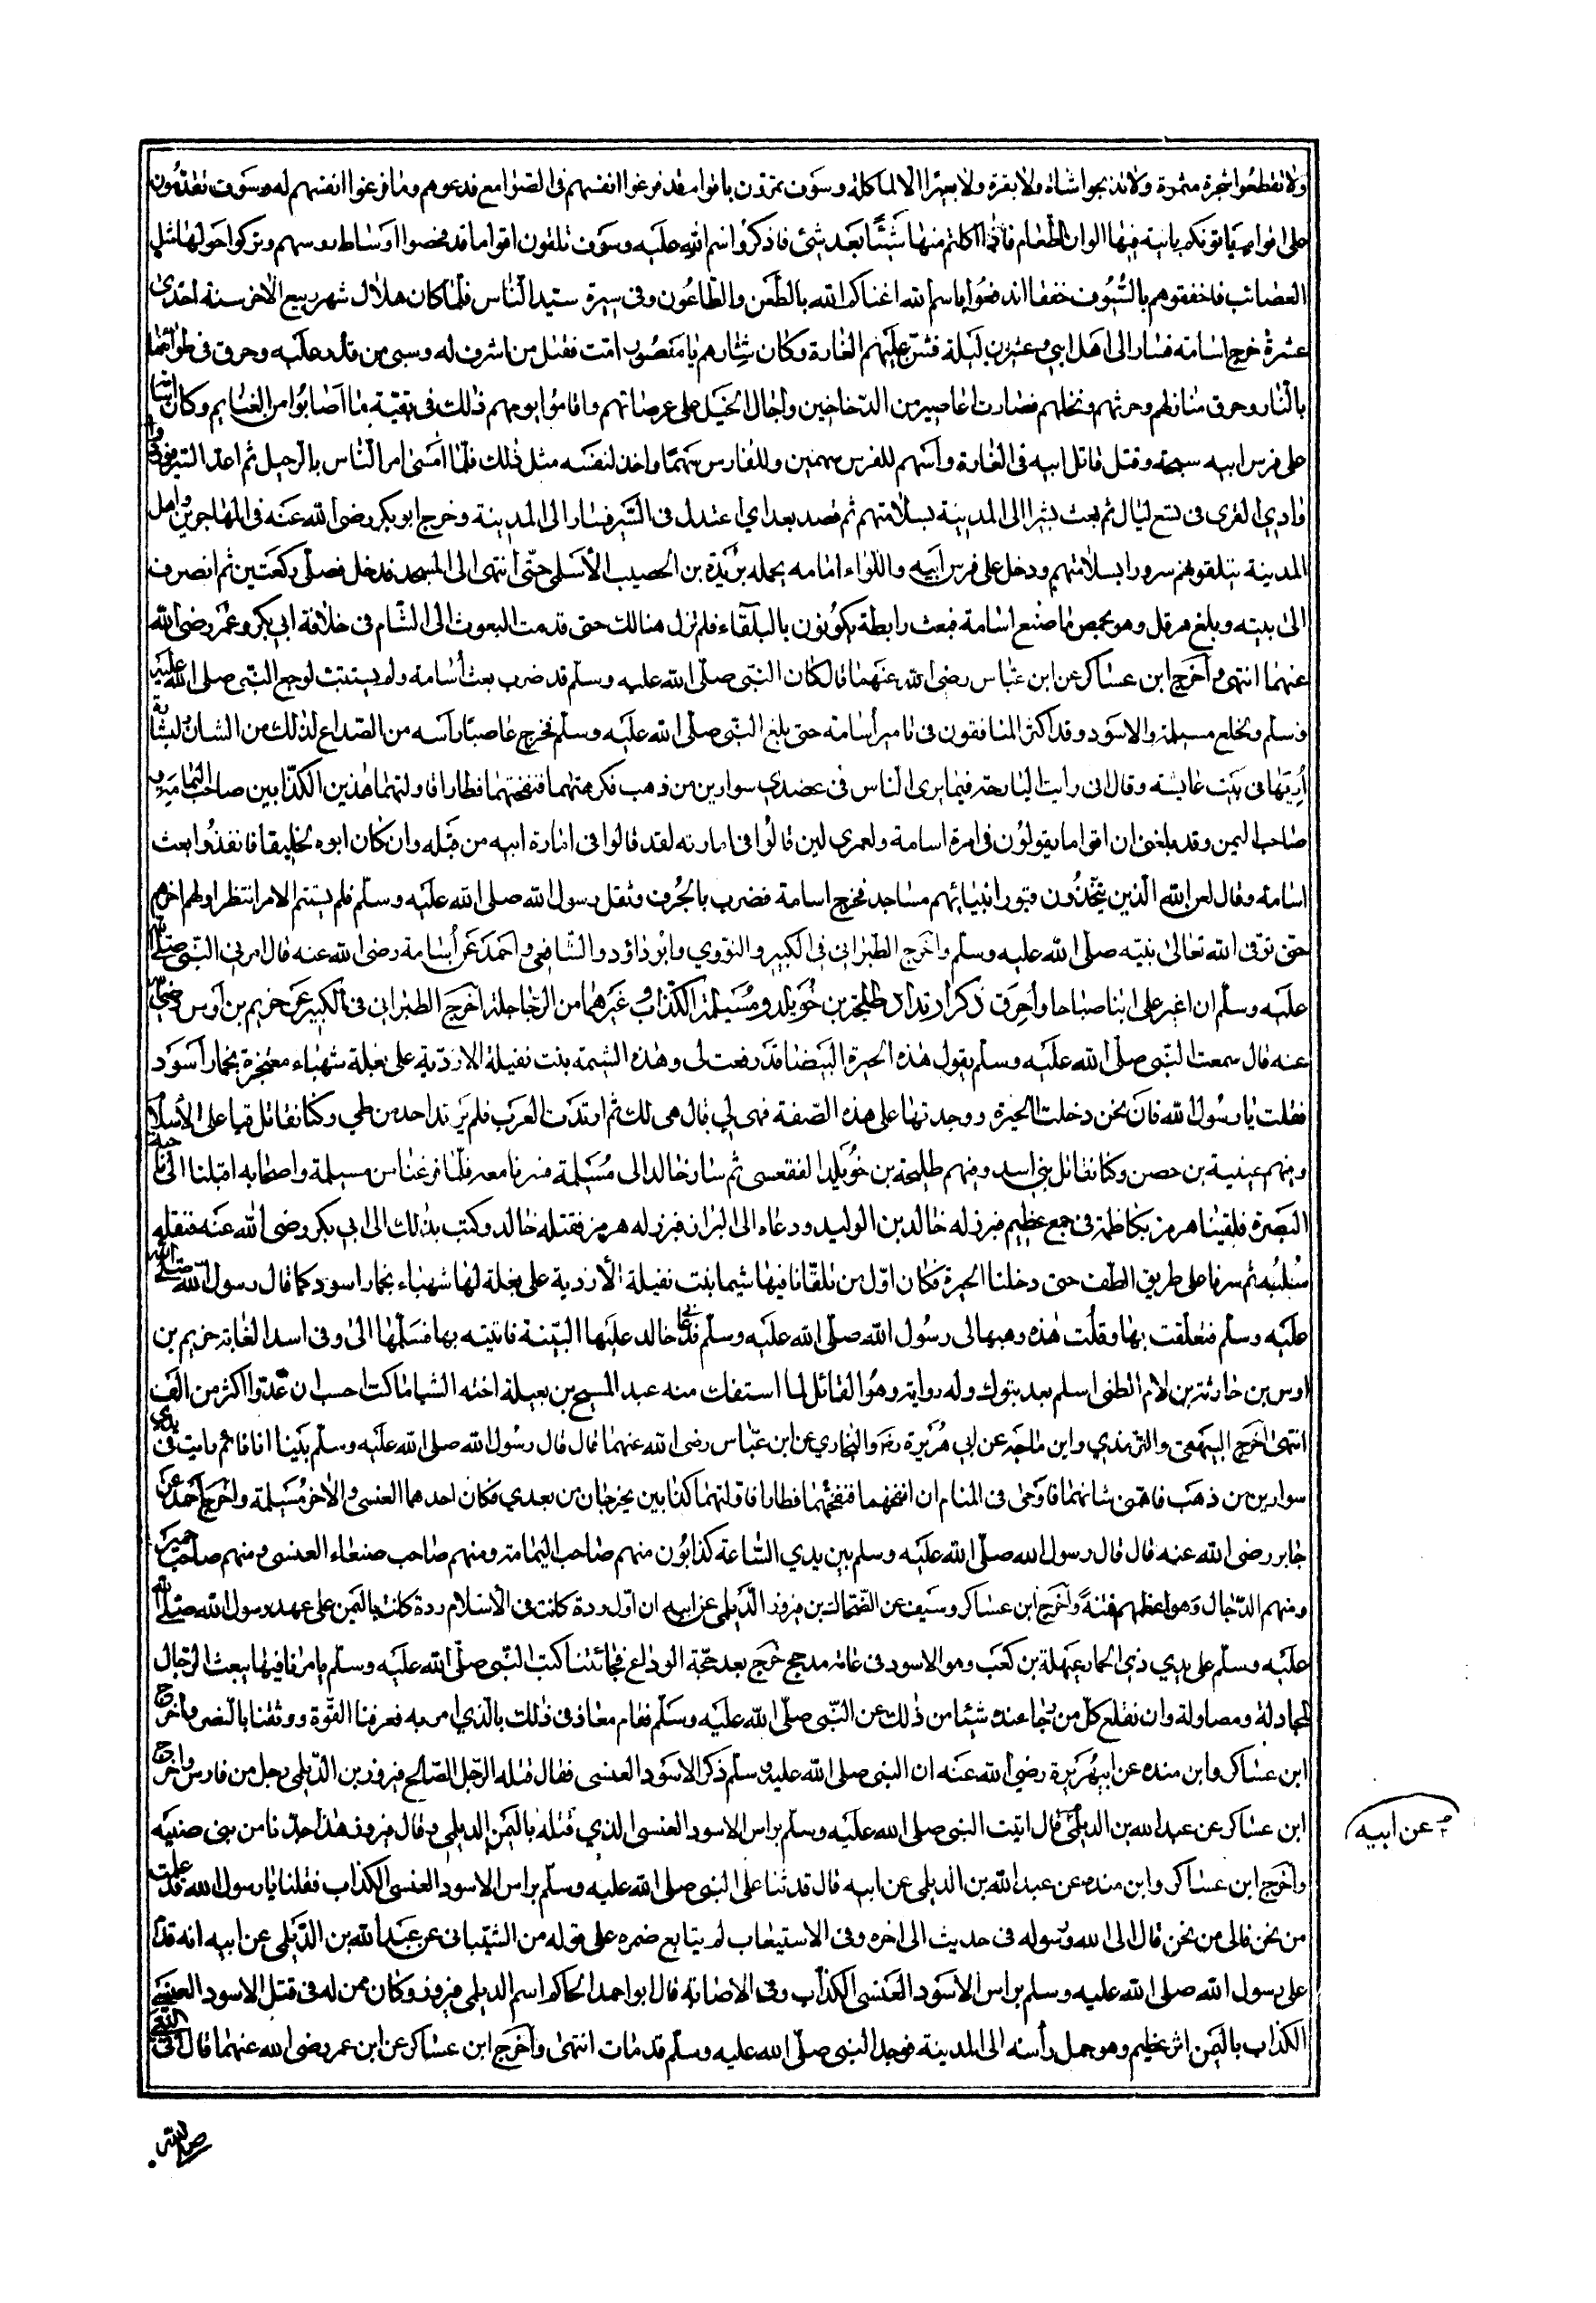 ولا تقطعوا شجرة مثمرة ولا تذبحوا شاة ولا بقرة ولا بعيرا الا لماكلة وسوف تمرون باقوام قد فرغوا انفسهم فى الصوامع فدعوهم وما فرغوا انفسهم له وسوف تقدمون
على اقوام ياتونكم بانية فيها الوان الطعام فاذا اكلتم منها شيئا بعد شئ فاذكروا اسم الله عليه وسوف تلقون اقواما قد فحصوا اوساط روسهم وتركوا حولها مثل
العصائب فاخفقوهم بالسيوف خفقا اندفعوا باسم الله اغناكم الله بالطعن والطاعون وفى سيرة سيد الناس فلما كان هلال شهر ربيع الاخر سنة احدى
عشرة خرج اسامة فسار الى اهل ابنى عشرين ليلة فشن عليهم الغارة وكان شعارهم يا منصور امت فقتل من اشرف له وسبى من قدر عليه وحرق فى طوائفها
بالنار وحرق منازلهم وحرثهم ونخلهم فصارت اعاصير من الدخاخين واجال الخيل على عرصاتهم واقاموا يومهم ذلك فى تعبئة ما اصابوا من الغنايم وكان اسامة
على فرس ابيه سبحة وقتل قاتل ابيه فى الغارة واسهم للفرس سهمين وللفارس سهما واخذ لنفسه مثل ذلك فلما امسى امر الناس بالرحيل ثم اغذ السير فورد
وادي القرى فى تسع ليال ثم بعث بشيرا الى المدينة بسلامتهم ثم قصد بعد اي اعتدل فى السير فسار الى المدينة وخرج ابو بكر رضى الله عنه فى المهاجرين واهل
المدينة يتلقوهم سرورا بسلامتهم ودخل على فرس ابيه واللواء امامه يحمله بريدة بن الحصيب الأسلمي حتى انتهى الى المسجد فدخل فصلى ركعتين ثم انصرف
الى بيته وبلغ هرقل وهو بحمص ما صنع اسامة فبعث رابطة يكونون بالبلقاء فلم تزل هنالك حتى قدمت البعوث الى الشام فى خلافة ابي بكر وعمر رضى الله
عنهما انتهى واخرج ابن عساكر عن ابن عباس رضى الله عنهما قال كان النبى صلى الله عليه وسلم قد ضرب بعث أسامة ولم يستتب لوجع النبى صلى الله عليه
وسلم وتخلع مسيلمة والاسود وقد اكثر المنافقون فى تامير أسامة حتى بلغ النبى صلى الله عليه وسلم فخرج عاصبا راسه من الصداع لذلك من الشان ولبشارة
أريها فى بيت عايشة وقال انى رايت البارحة فيما يرى الناس فى عضدي سوارين من ذهب فكرهتهما فنفختهما فطارا فاولتهما هذين الكذابين صاحب اليمامة و
صاحب اليمن وقد بلغنى ان اقواما يقولون فى امرة اسامة ولعمري لين قالوا فى امارته لقد قالوا فى امارة ابيه من قبله وان كان ابوه لخليقا فانفذوا بعث
اسامة وقال لعن الله الذين يتخذون قبور انبيائهم مساجد فخرج اسامة فضرب بالجرف وثقل رسول الله صلى الله عليه وسلم فلم يستتم الامر انتظر اولهم اخرهم
حتى توفى الله تعالى نبيه صلى الله عليه وسلم واخرج الطبراني في الكبير والنووي وابو داؤد والشافعي واحمد عن أسامة رضى الله عنه قال امرني النبى صلى الله
عليه وسلم ان اغير على ابنا صباحا وأحرق ذكر ارتداد طليحة بن خويلد ومسيلمة الكذاب وغيرهما من الدجاجلة اخرج الطبراني فى الكبير عن خريم بن اوس رضى الله
عنه قال سمعت النبى صلى الله عليه وسلم يقول هذه الحيرة البيضا قد رفعت لى وهذه الشيمة بنت نفيلة الازدية على بغلة شهباء معتجرة بخمار اسود
فقلت يا رسول الله فان نحن دخلنا الحيرة ووجدتها على هذه الصفة فهى لي قال هى لك ثم ارتدت العرب فلم يرتد احد من طي وكنا نقاتل قيسا على الأسلام
ومنهم عيينة بن حصن وكنا نقاتل بنى اسد ومنهم طليحة بن خويلد الفقعسى ثم سار خالد الى مسيلمة فسرنا معه فلما فرغنا من مسيلمة واصحابه اقبلنا الى ناحية
البصرة فلقينا هرمز بكاظمة فى جمع عظيم فبرز له خالد بن الوليد ودعاه الى البراز فبرز له هرمز فقتله خالد وكتب بذلك الى ابي بكر رضى الله عنه فنفله
سلبه ثم سرنا على طريق الطف حتى دخلنا الحيرة فكان اول من تلقانا فيها شيما بنت نفيلة الأزدية على بغلة لها شهباء بخمار اسود كما قال رسول الله صلى الله
عليه وسلم فتعلقت بها وقلت هذه وهبها لى رسول الله صلى الله عليه وسلم فدعا خالد عليها البينة فاتيته بها فسلمها الى وفى اسد الغابة خريم بن
اوس بن حارثة بن لام الطئى اسلم بعد تبوك وله رواية وهو القائل لما استفلت منه عبد المسيح بن بعيلة اخته الشيما ما كنت احسب ان عدوا اكثر من الف
انتهى اخرج البيهقى والترمذي وابن ماجه عن ابي هريرة رض والبخاري عن ابن عباس رضى الله عنهما قال قال رسول الله صلى الله عليه وسلم بينا انا نائم رايت فى يدي
سوارين من ذهب فاهمنى شانهما فاوحى فى المنام ان انفخهما فنفختهما فطارا فاولتهما كذابين يخرجان من بعدي فكان احدهما العنسى والاخر مسيلمة واخرج احمد عن
جابر رضى الله عنه قال قال رسول الله صلى الله عليه وسلم بين يدي الساعة كذابون منهم صاحب اليمامة ومنهم صاحب صنعاء العنسى ومنهم صاحب حمير
ومنهم الدجال وهو اعظمهم فتنة واخرج ابن عساكر وسيف عن الضحاك بن فيروز الديلمى عن ابيه ان اول ردة كانت فى الأسلام ردة كانت باليمن على عهد رسول الله صلى الله
عليه وسلم على يدي ذي الحمار عبهلة بن كعب وهو الاسود فى عامة مدحج خرج بعد حجة الوداع فجائتنا كتب النبى صلى الله عليه وسلم يامرنا فيها ببعث الرجال
لمجادلة ومصاولة وان نقلع كل من رجا عنده شيئا من ذلك عن النبى صلى الله عليه وسلم فقام معاذ فى ذلك بالذي امر به فعرفنا القوة ووثقنا بالنصر واخرج
ابن عساكر وابن منده عن ابي هريرة رضي الله عنه ان النبى صلى الله عليه وسلم ذكر الاسود العنسى فقال قتله الرجل الصالح فيروز بن الديلمى رجل من فارس واخرج
ابن عساكر عن عبد الله بن الديلمي قال اتيت النبى صلى الله عليه وسلم براس الاسود العنسى الذي قتله باليمن الديلمي وقال فيروز هذا حدثنا من بنى ضبيه
عن ابيه
واخرج ابن عساكر وابن منده عن عبد الله بن الديلمى عن ابيه قال قدمنا على النبى صلى الله عليه وسلم براس الاسود العنسى الكذاب فقلنا يا رسول الله قد علمت
من نحن فالى من نحن قال الى الله ورسوله فى حديث الى اخره وفى الاستيعاب لم يتابع ضمره على قوله من الشيبانى عن عبد الله بن الديلمى عن ابيه انه قدم
على رسول الله صلى الله عليه وسلم براس الاسود العنسى الكذاب وفى الاصابة قال ابو احمد الحاكم اسم الديلمى فيروز وكان ممن له فى قتل الاسود العنسى
الكذاب باليمن اثر عظيم وهو حمل رأسه الى المدينة فوجد النبى صلى الله عليه وسلم قد مات انتهى واخرج ابن عساكر عن ابن عمر رضى الله عنهما قال اتى